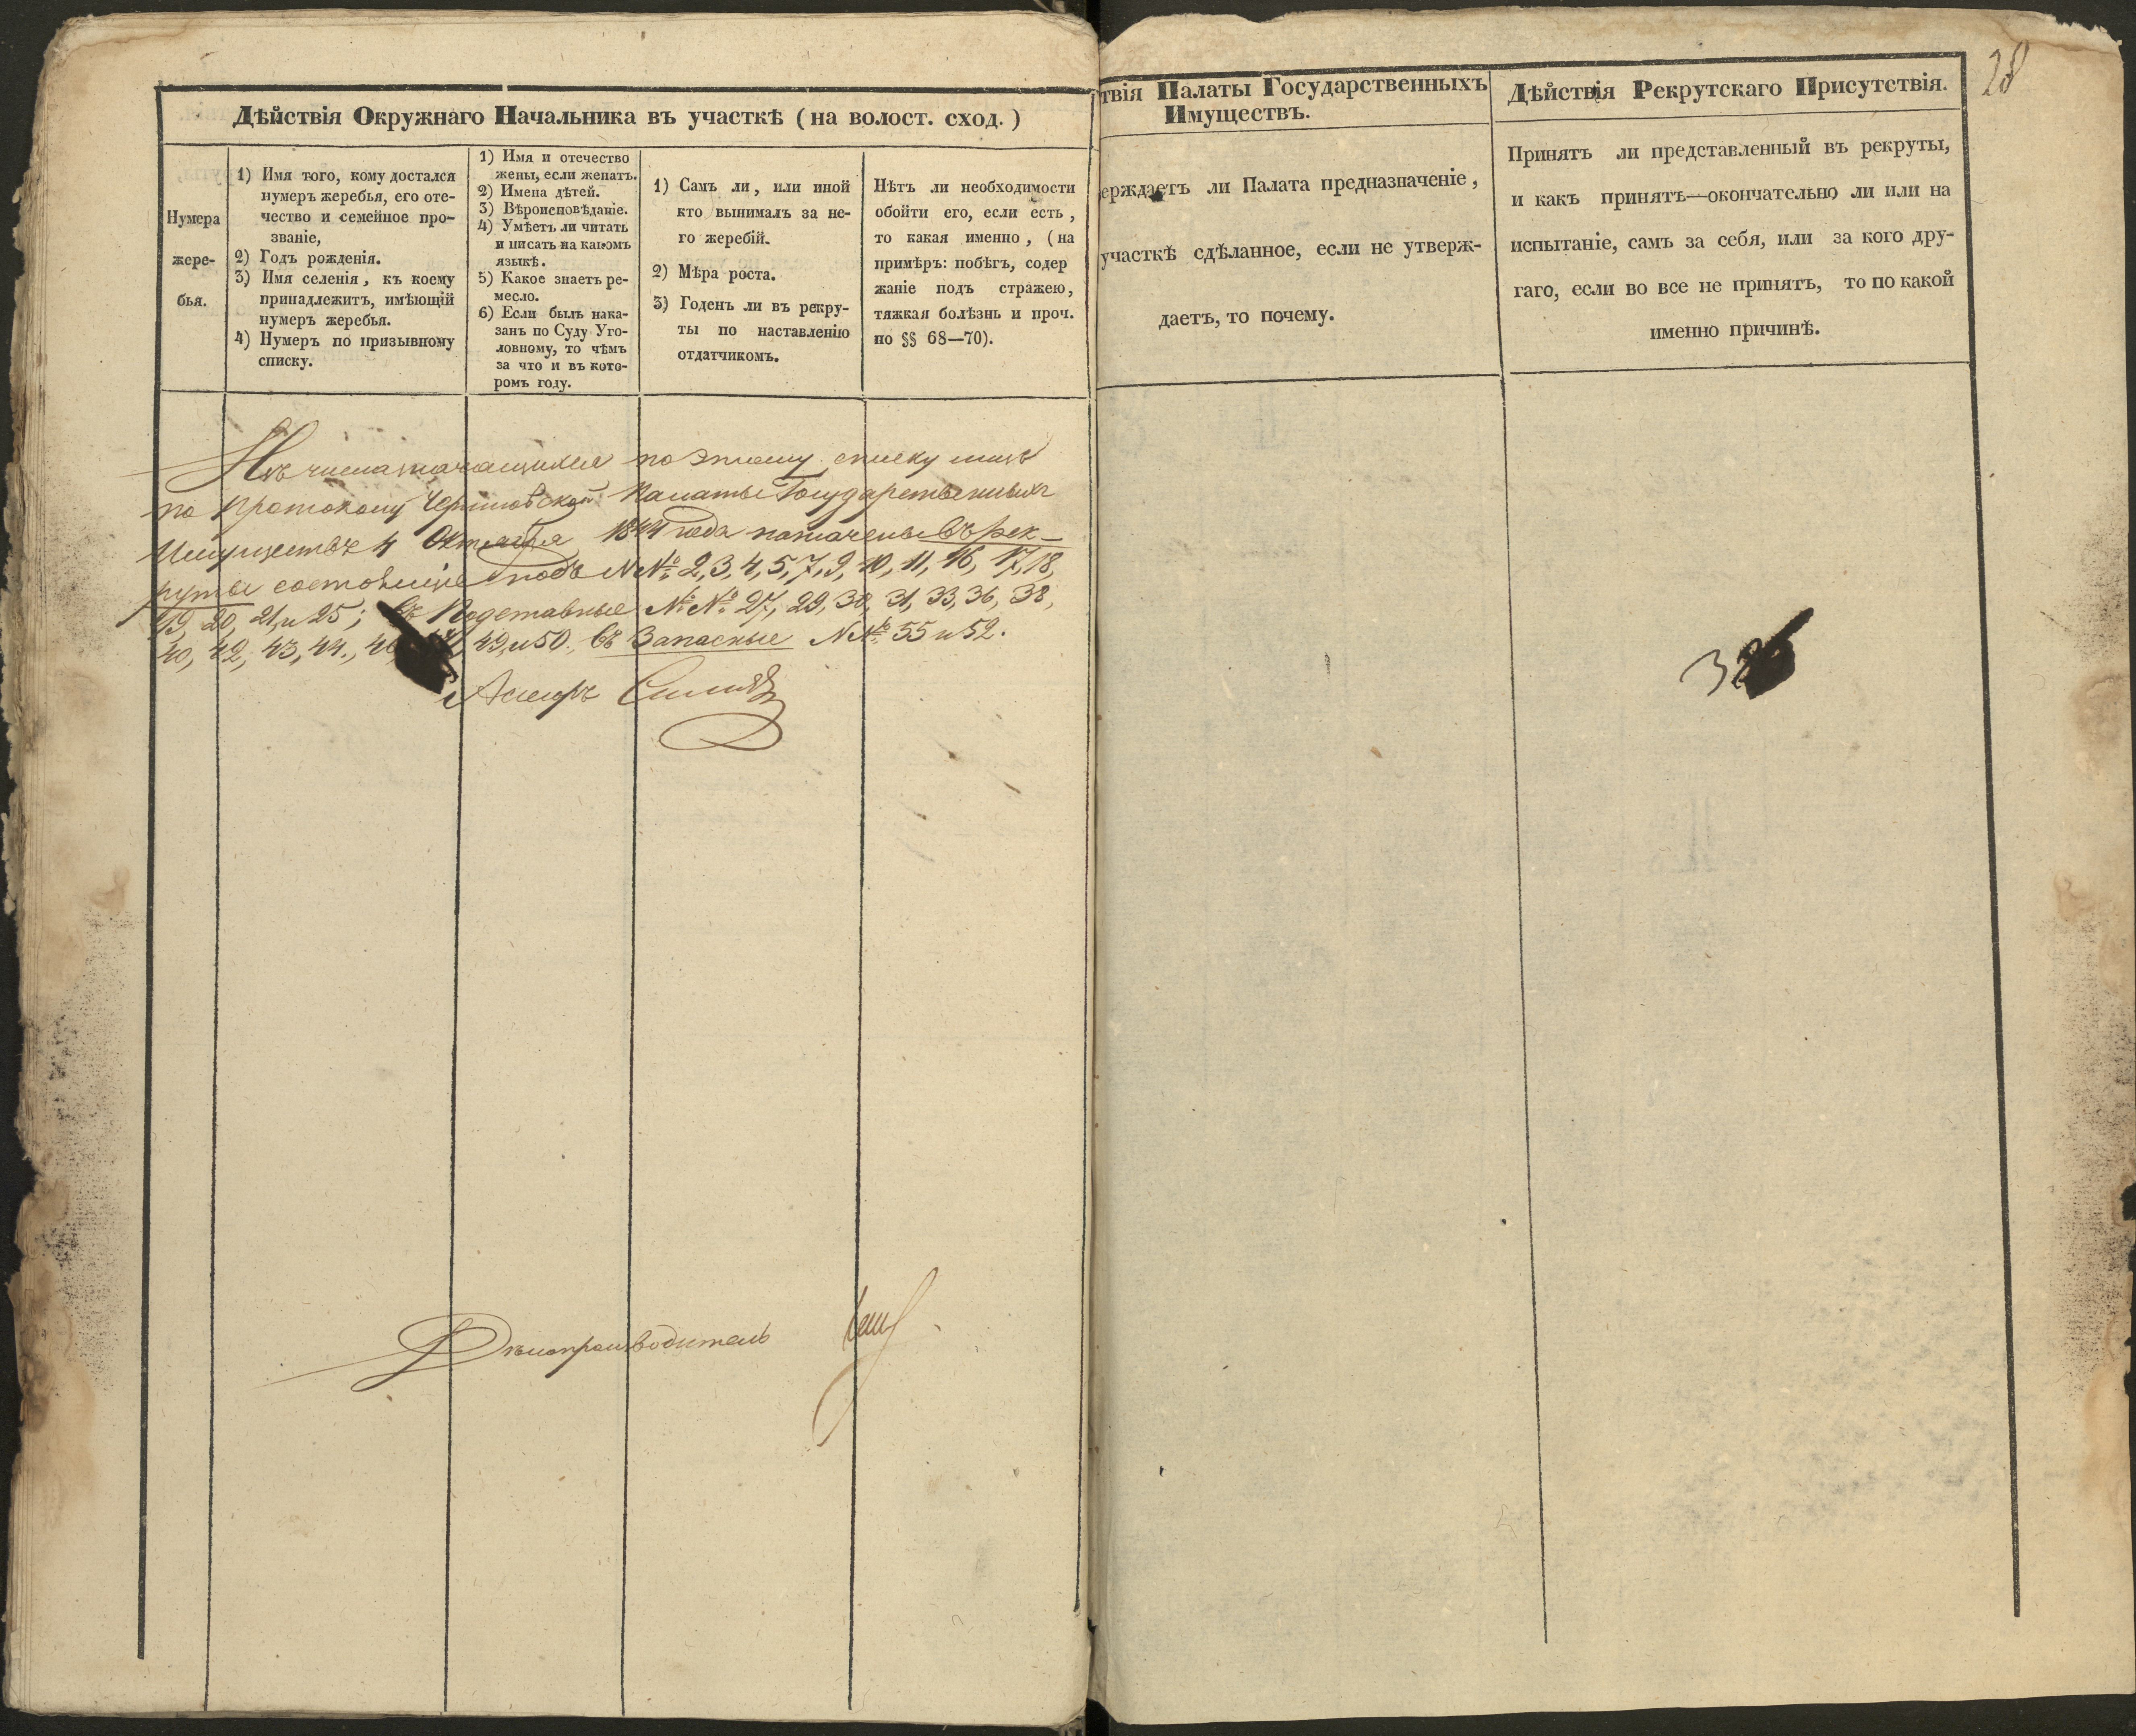 28
Дѣйствія Окружнаго Начальника въ участкѣ (на волост. сход.)
Нумера
жере-
бья.
1) Имя того, кому достался
нумеръ жеребья, его оте-
чество и семейное про-
званіе,
2) Годъ рожденія.
3) Имя селенія, къ коему
принадлежитъ, имѣющій
нумеръ жеребья.
4) Нумеръ по призывному
списку.
1) Имя и отечество
жены, если женатъ.
2) Имена дѣтей.
3) Вѣроисповѣданіе.
4) Умѣетъ ли читать
и писать на какомъ
языкѣ.
5) Какое знаетъ ре-
месло.
6) Если былъ нака-
занъ по Суду Уго-
ловному, то чѣмъ
за что и въ кото-
ромъ году.
1) Самъ ли, или иной
кто вынималъ за не-
го жеребій.
2) Мѣра роста.
3) Годенъ ли въ рекру-
ты по наставленію
отдатчикомъ.
Нѣтъ ли необходимости
обойти его, если есть,
то какая именно, (на
примѣръ: побѣгъ, содер
жаніе подъ стражею,
тяжкая болѣзнь и проч.
по §§ 68—70).
Изъ числа значащихся по этому списку лицъ
по Протоколу Черниговской Палаты Государственныхъ
Имуществъ 4 Октября 1844 года назначены въ рек-
руты состоящіе подъ №№ 2, 3, 4, 5, 7, 9, 10, 11, 16, 17, 18,
19, 20, 21, и 25; въ Подставные №№ 27, 29, 30, 31, 33, 36, 38,
40, 42, 43, 44, 49, и 50. Въ Запасные №№ 55 и 52.
Дѣлопроизводитель
твія Палаты Государственныхъ
Имуществъ.
ерждаетъ ли Палата предназначеніе,
участкѣ сдѣланное, если не утверж-
даетъ, то почему.
Дѣйствія Рекрутскаго Присутствія.
Принятъ ли представленный въ рекруты,
и какъ принятъ—окончательно ли или на
испытаніе, самъ за себя, или за кого дру-
гаго, если во все не принятъ, то по какой
именно причинѣ.